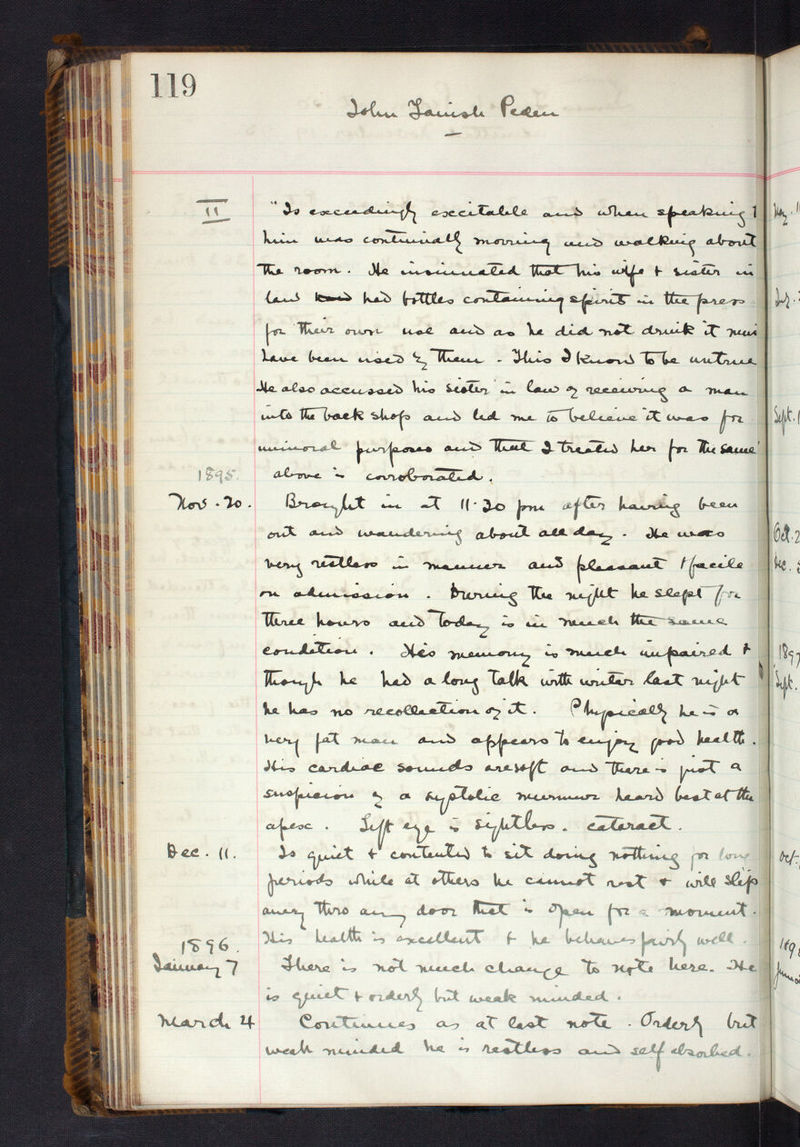 119
John Tainsh Peden
II "Is exceedingly excitable and when speaking t
him was continually moving and walking about
the room. He insinuated that his wife & sister in
law had had bottles containing spirits in the press
for their own use and as he did not drink it mus
have been used by them. This I know to be untrue
He also accussed his sister in law of receiving a man
into the back shop and led me to believe it was for
immoral purposes and that I treated her for the same"
1895. above is corroborated.
Nov. 20. Brought in at 11.30 pm after having been
out and wandering about all day. He was
very restless in manner and pleasant & facile
on admission. During the night he slept for
three hours and today is in much the same
condition. His memory is much impaired &
though he had a long talk with writer last night
he has no recollection of it. Physically he is a
very fat man and appears to enjoy good health.
His cardiac sounds are soft and there is just a
suspicion of a systolic murmur heard best at the
apex. Left eye is sightless. cataract.
Dec. 11. Is quiet & contented to sit doing nothing for long
periods while at others he cannot rest & will slip
away thro any door that is open for a moment.
1896. His health is excellent & he behaves fairly well.
January 7 There is not much change to note here. He
is quiet & orderly but weak minded.
March 4 Continues as at last note. Orderly but
weak minded he is restless and self absorbed.
Sept. 1
Oct. 2
1897
Sept.
Oct.